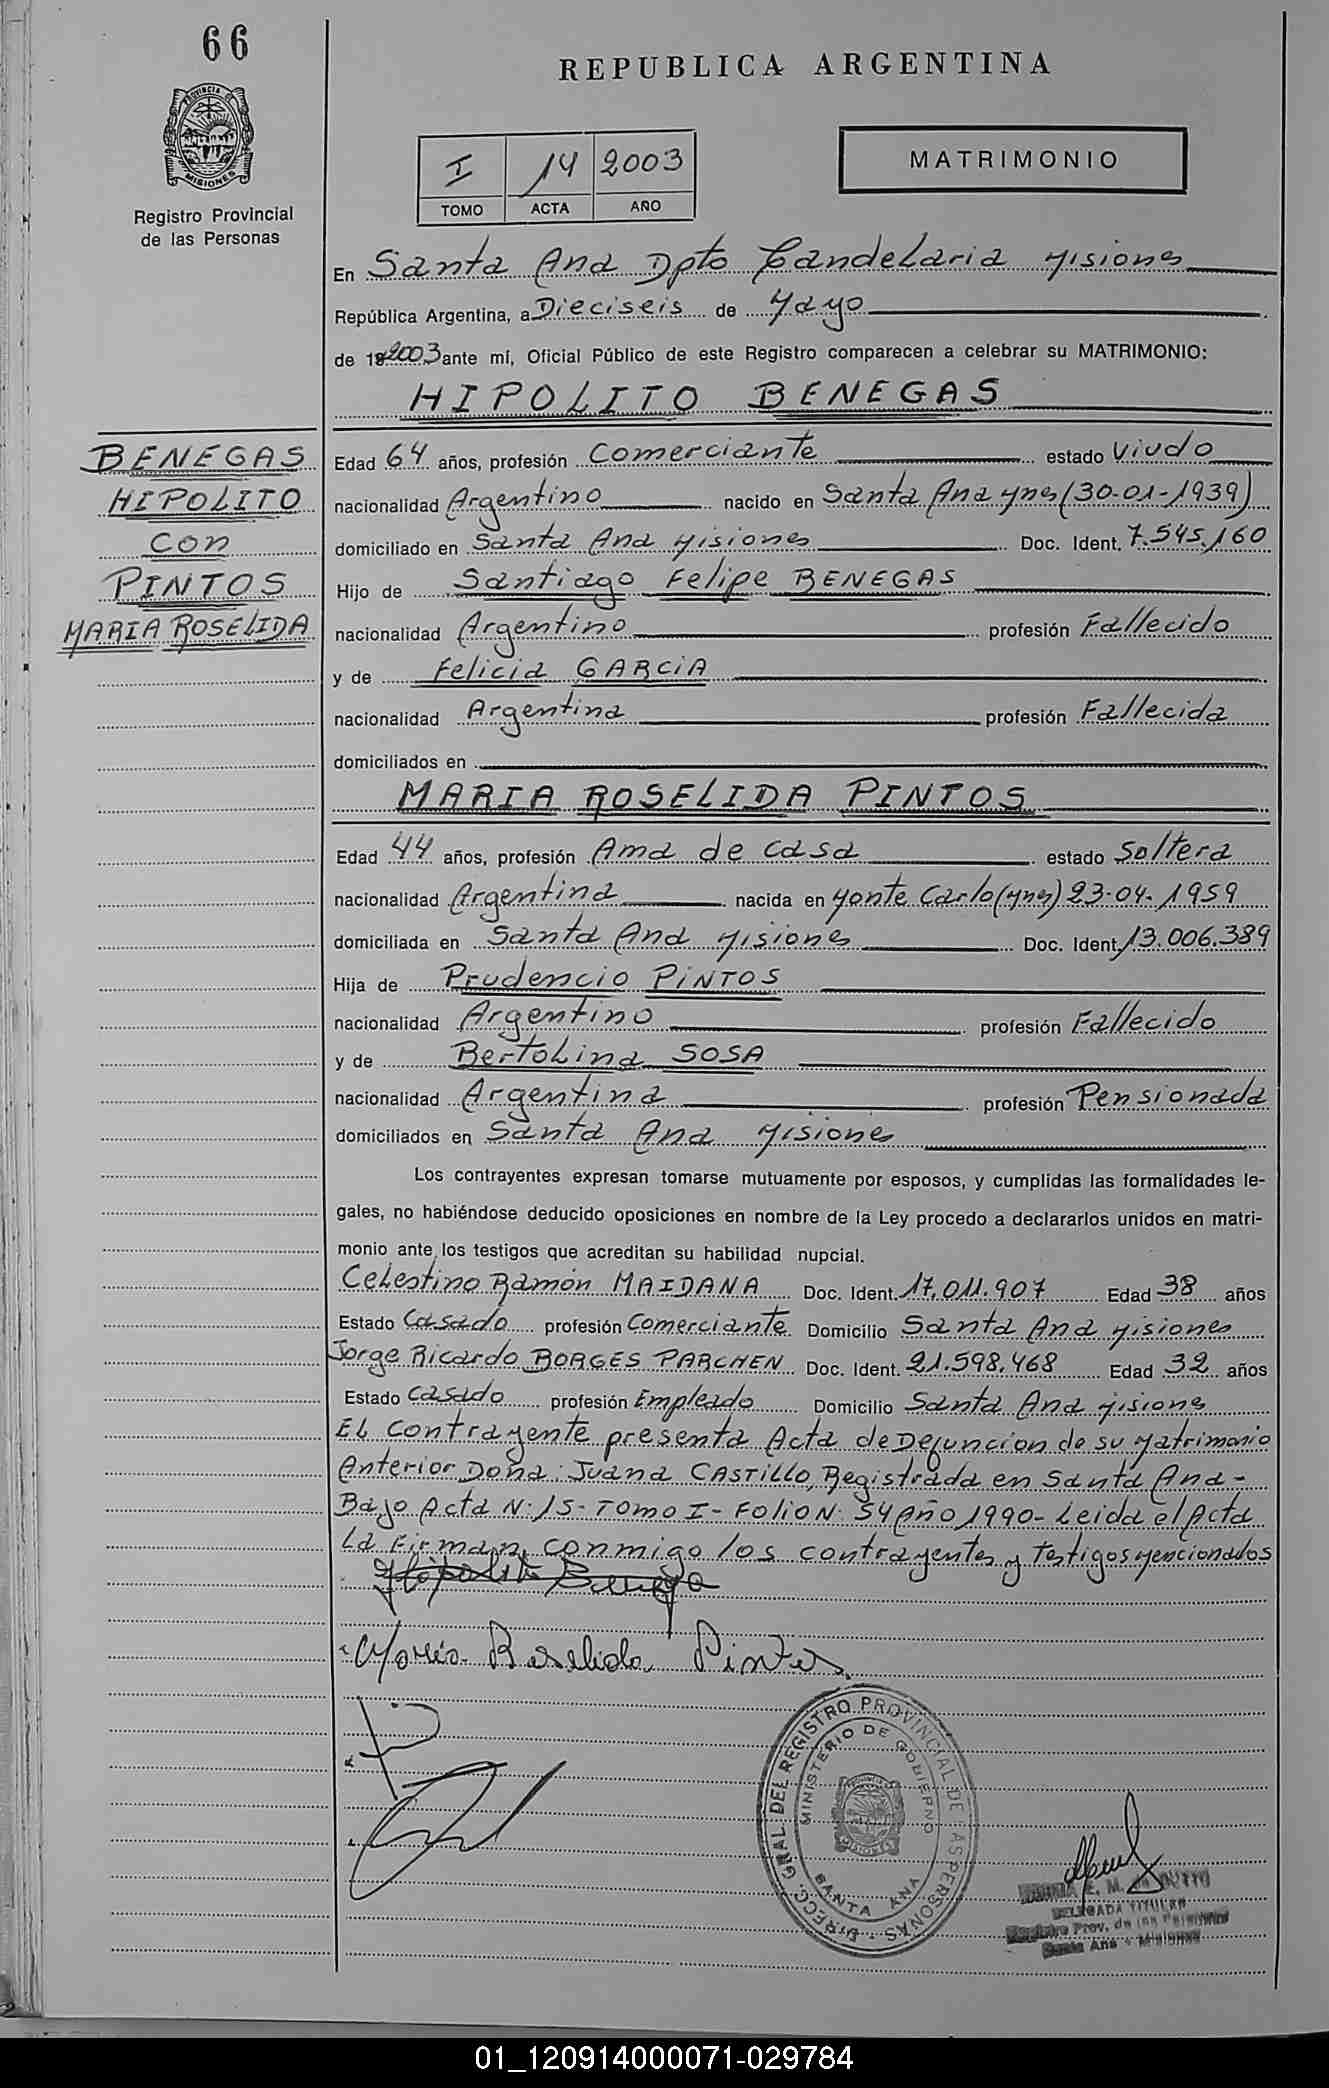 66
REPUBLICA ARGENTINA
PROVINCIA DE MISIONES
Registro Provincial
de las Personas
I 14 2003
TOMO ACTA AÑO
MATRIMONIO
En Santa Ana Dpto Candelaria Misiones
República Argentina, a Dieciseis de Mayo
de 2003 ante mí, Oficial Público de este Registro comparecen a celebrar su MATRIMONIO:
HIPOLITO BENEGAS
BENEGAS
HIPOLITO
CON
PINTOS
MARIA ROSELIDA
Edad 64 años, profesión Comerciante estado Viudo
nacionalidad Argentino nacido en Santa Ana Mnes (30-01-1939)
domiciliado en Santa Ana Misiones Doc. Ident. 7.545.160
Hijo de Santiago Felipe BENEGAS
nacionalidad Argentino profesión Fallecido
y de Felicia GARCIA
nacionalidad Argentina profesión Fallecida
domiciliados en
MARIA ROSELIDA PINTOS
Edad 44 años, profesión Ama de casa estado Soltera
nacionalidad Argentina nacida en Monte Carlo (Mnes) 23-04-1959
domiciliada en Santa Ana Misiones Doc. Ident. 13.006.389
Hija de Prudencio PINTOS
nacionalidad Argentino profesión Fallecido
y de Bertolina SOSA
nacionalidad Argentina profesión Pensionada
domiciliados en Santa Ana Misiones
Los contrayentes expresan tomarse mutuamente por esposos, y cumplidas las formalidades le-
gales, no habiéndose deducido oposiciones en nombre de la Ley procedo a declararlos unidos en matri-
monio ante los testigos que acreditan su habilidad nupcial.
Celestino Ramón MAIDANA Doc. Ident. 17.011.907 Edad 38 años
Estado Casado profesión Comerciante Domicilio Santa Ana Misiones
Jorge Ricardo BORGES PARCHEN Doc. Ident. 21.598.468 Edad 32 años
Estado Casado profesión Empleado Domicilio Santa Ana Misiones
El contrayente presenta Acta de Defuncion de su Matrimonio
Anterior Doña: Juana CASTILLO, Registrada en Santa Ana-
Bajo Acta N: 15- TOMO I- Folio N: 54 Año 1990- Leida el Acta
La Firman, conmigo los contrayentes y Testigos Mencionados
Hipolito Benega
Maria Roselida Pintos
DIRECC. GRAL. DEL REGISTRO PROVINCIAL DE LAS PERSONAS
MINISTERIO DE GOBIERNO
SANTA ANA
E. M.
DELEGADA TITULAR
Registro Prov. de las Personas
Santa Ana - Misiones
01_120914000071-029784